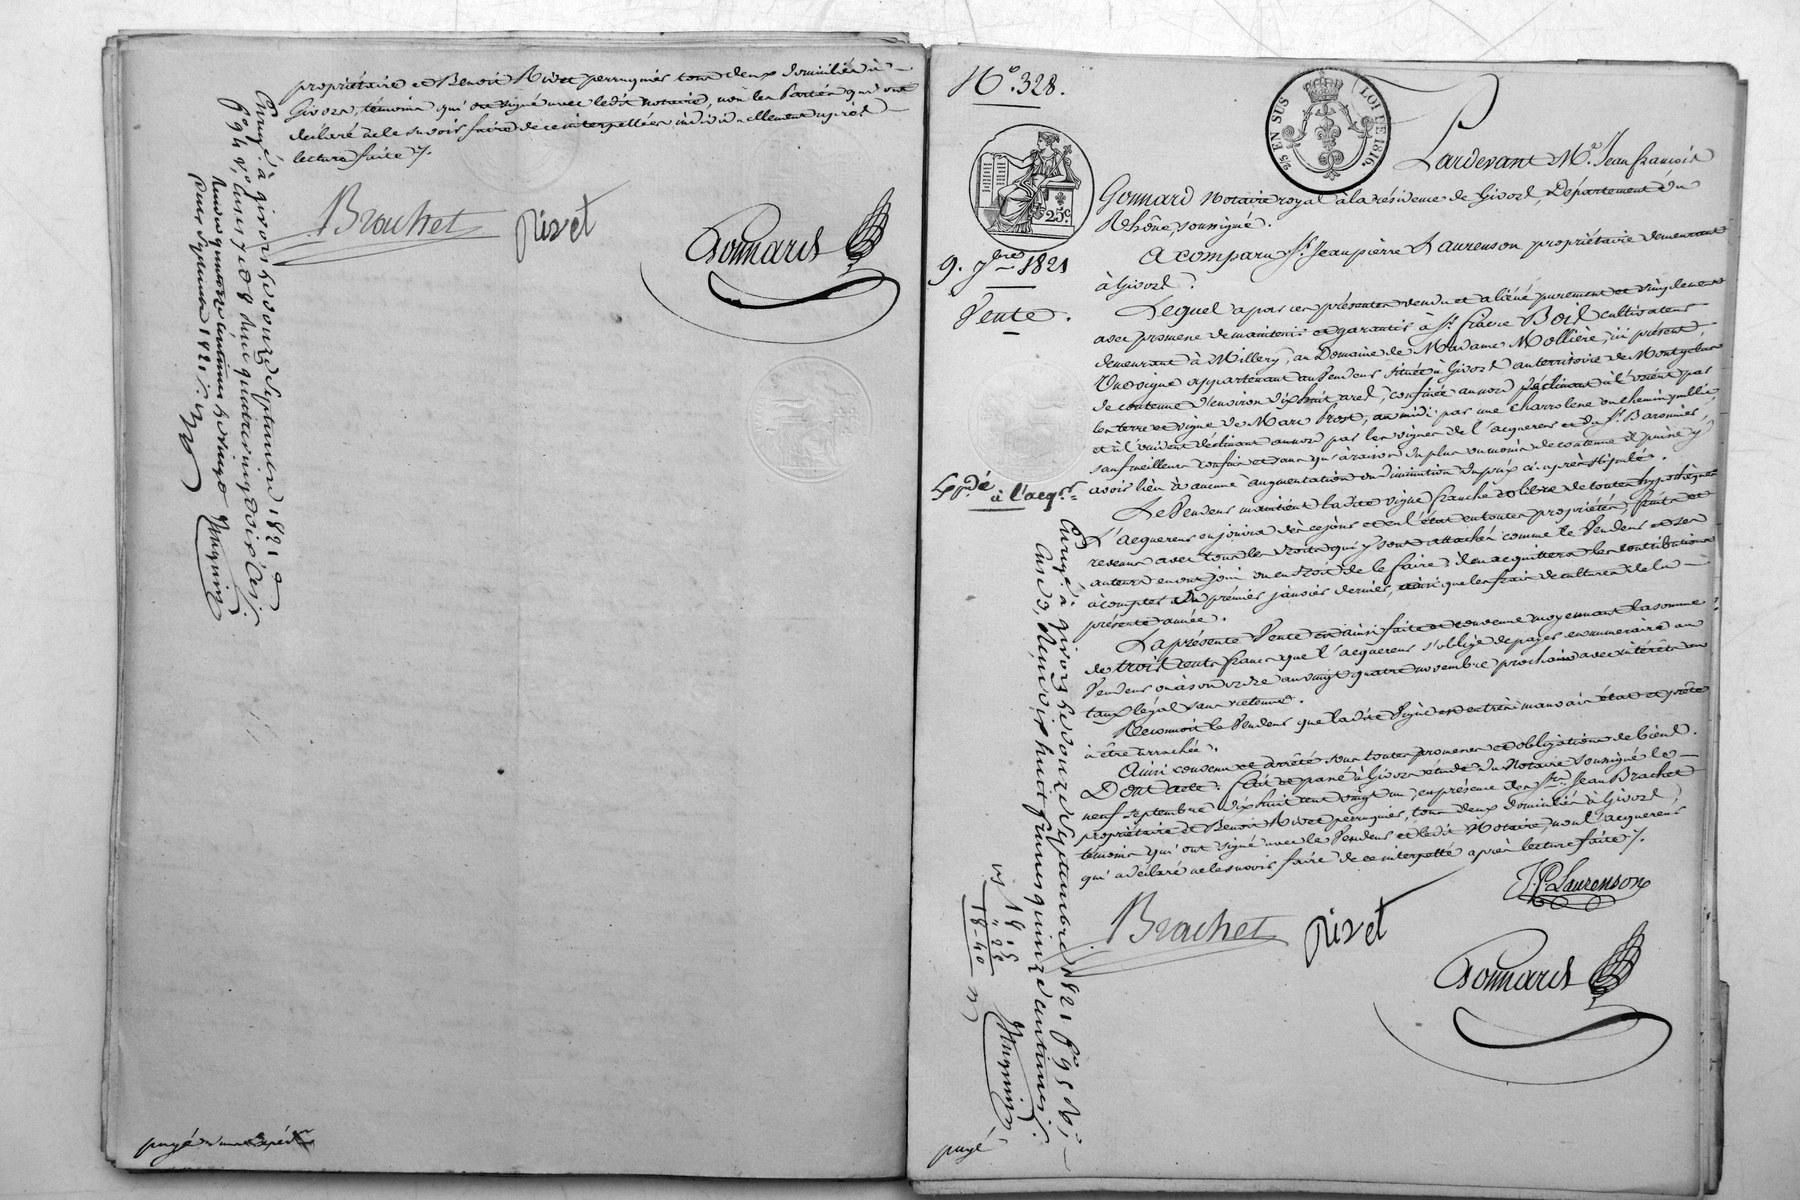 propriétaire et Benoit Rivet perruquier tous deux domiciliés à
Givors, témoins qui ont signé avec ledit Notaire, non les Parties qui ont
déclaré ne le savoir faire de ce interpellées individuellement après
lecture faite ./.
Brachet Rivet
Gonnard
Enregé à Givors le douze Septembre 1821,
f° 94 v°, cases 7 et 8
Septembre 1821
payé
N°. 328.
25 EN SUS
LOI DE 1816.
25c.
9. 7bre 1821
Vente.
Pardevant Me. Jean francois
Gonnard Notaire royal à la résidence de Givors, Département du
Rhône, soussigné.
A comparu Sr. Jean pierre Laurenson propriétaire demeurant
à Givors.
Lequel a par ces présentes vendu et aliéné purement et simplement
avec promesse de maintenir et garantir à Sr. Boil cultivateur
demeurant à Millery, au Domaine de Madame Mollière, ici présent
Une vigne appartenant au Vendeur située à Givors au territoire de
de contenue d'environ dix huit ares, confinée au nord déclinant à l'orient par
les terre et vigne de Marc Prost, au midi par une charrolerie ou chemin public,
et à l'occident déclinant au nord par les vignes de l'acquereur et du Sr. Baronnier,
sauf meilleurs confins et sans qu'à raison du plus ou moins de contenue il puisse y
avoir lieu à aucune augmentation ou diminution du prix ci-après stipulé.
Expdé
à l'acqr.
Le Vendeur maintient ladite vigne franche et libre de toutes hypothèques
L'acquereur en jouira dès ce jour et en l'état en toutes propriétés, fruits et
revenus avec tous les droits qui y sont attachés comme le Vendeur et ses
auteurs en ont joui ou eu droit de le faire; il en acquittera les contributions
à compter du premier janvier dernier, ainsi que les frais de cultures de la
présente année.
La présente Vente est ainsi faite et convenue moyennant la somme
de trois cents francs que l'acquereur s'oblige de payer en numéraire au
Vendeur ou à son ordre au vingt quatre novembre prochain avec intérêts au
taux légal sans retenue.
Reconnoit le Vendeur que ladite Vigne est en très mauvais état et prête
à être arrachée.
Ainsi convenu et arrêté sous toutes promesses et obligations de biens.
Dont acte. fait et passé à Givors étude du Notaire soussigné le
neuf Septembre dix huit cent vingt un, en présence des Srs. Jean Brachet
propriétaire et Benoit Rivet perruquier, tous deux domiciliés à Givors,
témoins qui ont signé avec le Vendeur et ledit Notaire, non l'acquereur
qui a déclaré ne le savoir faire de ce interpellé après lecture faite ./.
J.P. Laurenson
Brachet Rivet
Gonnard
Enregé à Givors le douze Septembre 1821 f° 95 v°,
case 3, Reçu dix huit francs quinze centimes.
18 . 15
" 25
18 - 40
payé